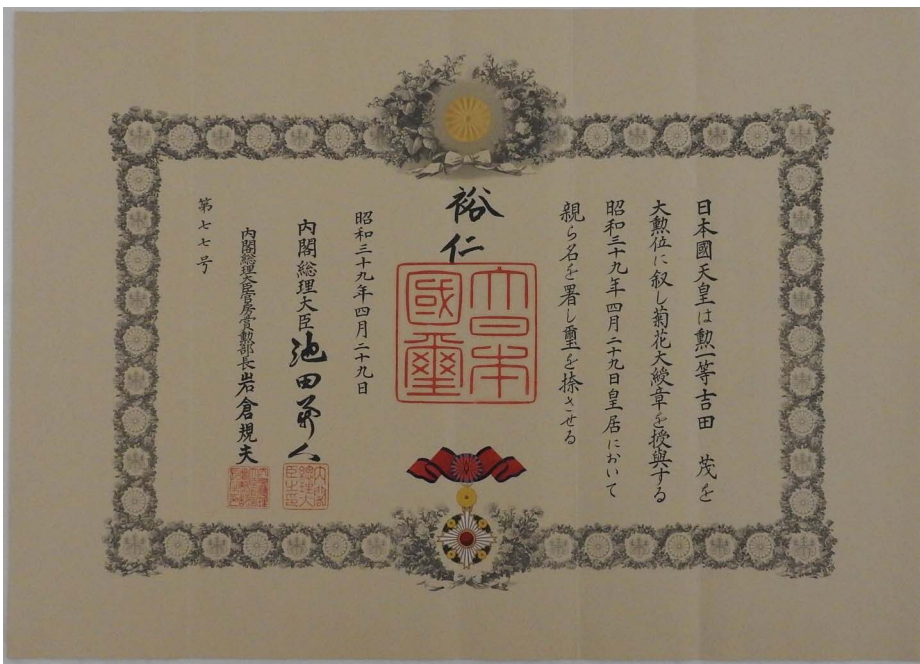 日本國天皇は勲一等吉田 茂を
大勲位に叙し菊花大綬章を授與する
昭和三十九年四月二十九日皇居において
親ら名を署し璽を捺させる
裕仁
大日本
國璽
昭和三十九年四月二十九日
内閣総理大臣 池田勇人
内閣總理大臣之印
内閣総理大臣官房賞勲部長 岩倉規夫
第七七号